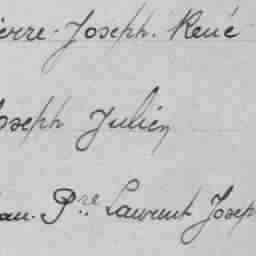 ierre-Joseph. René
Joseph Julien
ean. Pre Laurent Josep